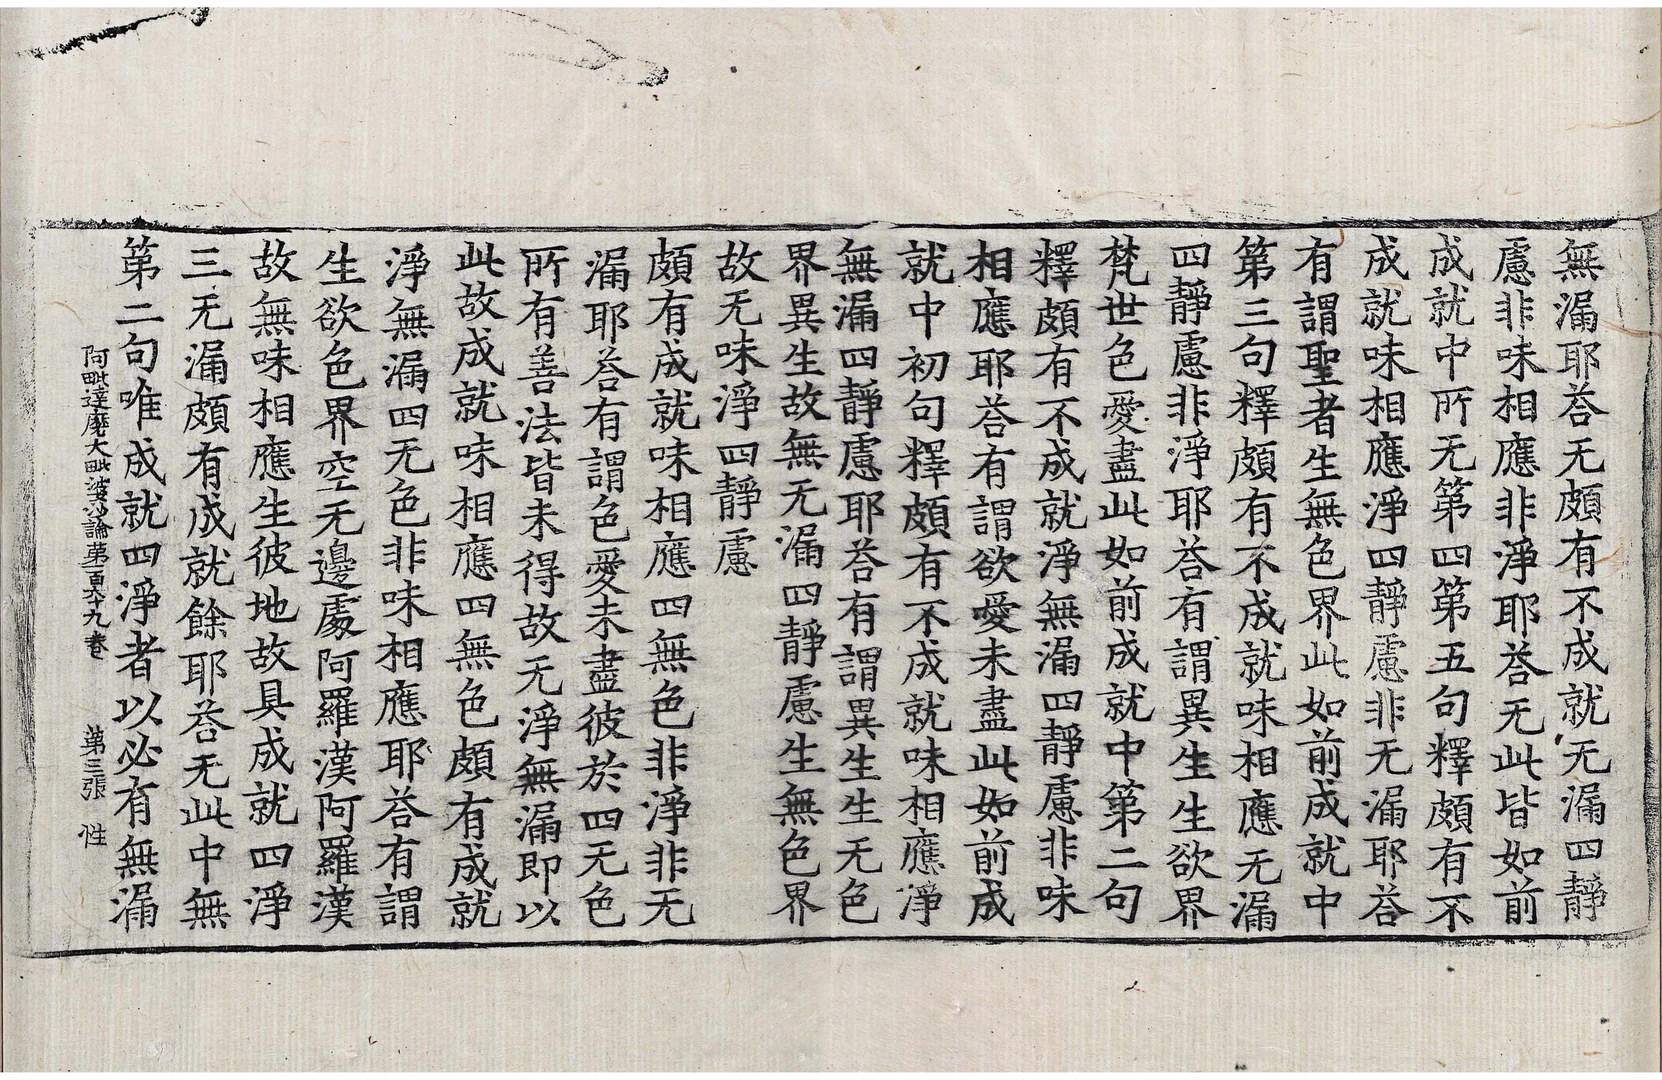 無漏耶荅无頗有不成就无漏四靜
慮非味相應非淨耶荅无此皆如前
成就中所无第四第五句釋頗有不
成就味相應淨四靜慮非无漏耶荅
有謂聖者生無色界此如前成就中
第三句釋頗有不成就味相應无漏
四靜慮非淨耶荅有謂異生生欲界
梵世色愛盡此如前成就中第二句
釋頗有不成就淨無漏四靜慮非味
相應耶荅有謂欲愛未盡此如前成
就中初句釋頗有不成就味相應淨
無漏四靜慮耶荅有謂異生生无色
界異生故無无漏四靜慮生無色界
故无味淨四靜慮
頗有成就味相應四無色非淨非无
漏耶荅有謂色愛未盡彼於四无色
所有善法皆未得故无淨無漏即以
此故成就味相應四無色頗有成就
淨無漏四无色非味相應耶荅有謂
生欲色界空无邊處阿羅漢阿羅漢
故無味相應生彼地故具成就四淨
三无漏頗有成就餘耶荅无此中無
第二句唯成就四淨者以必有無漏
阿毗達磨大毗婆沙論第一百六十九卷 第三張 性